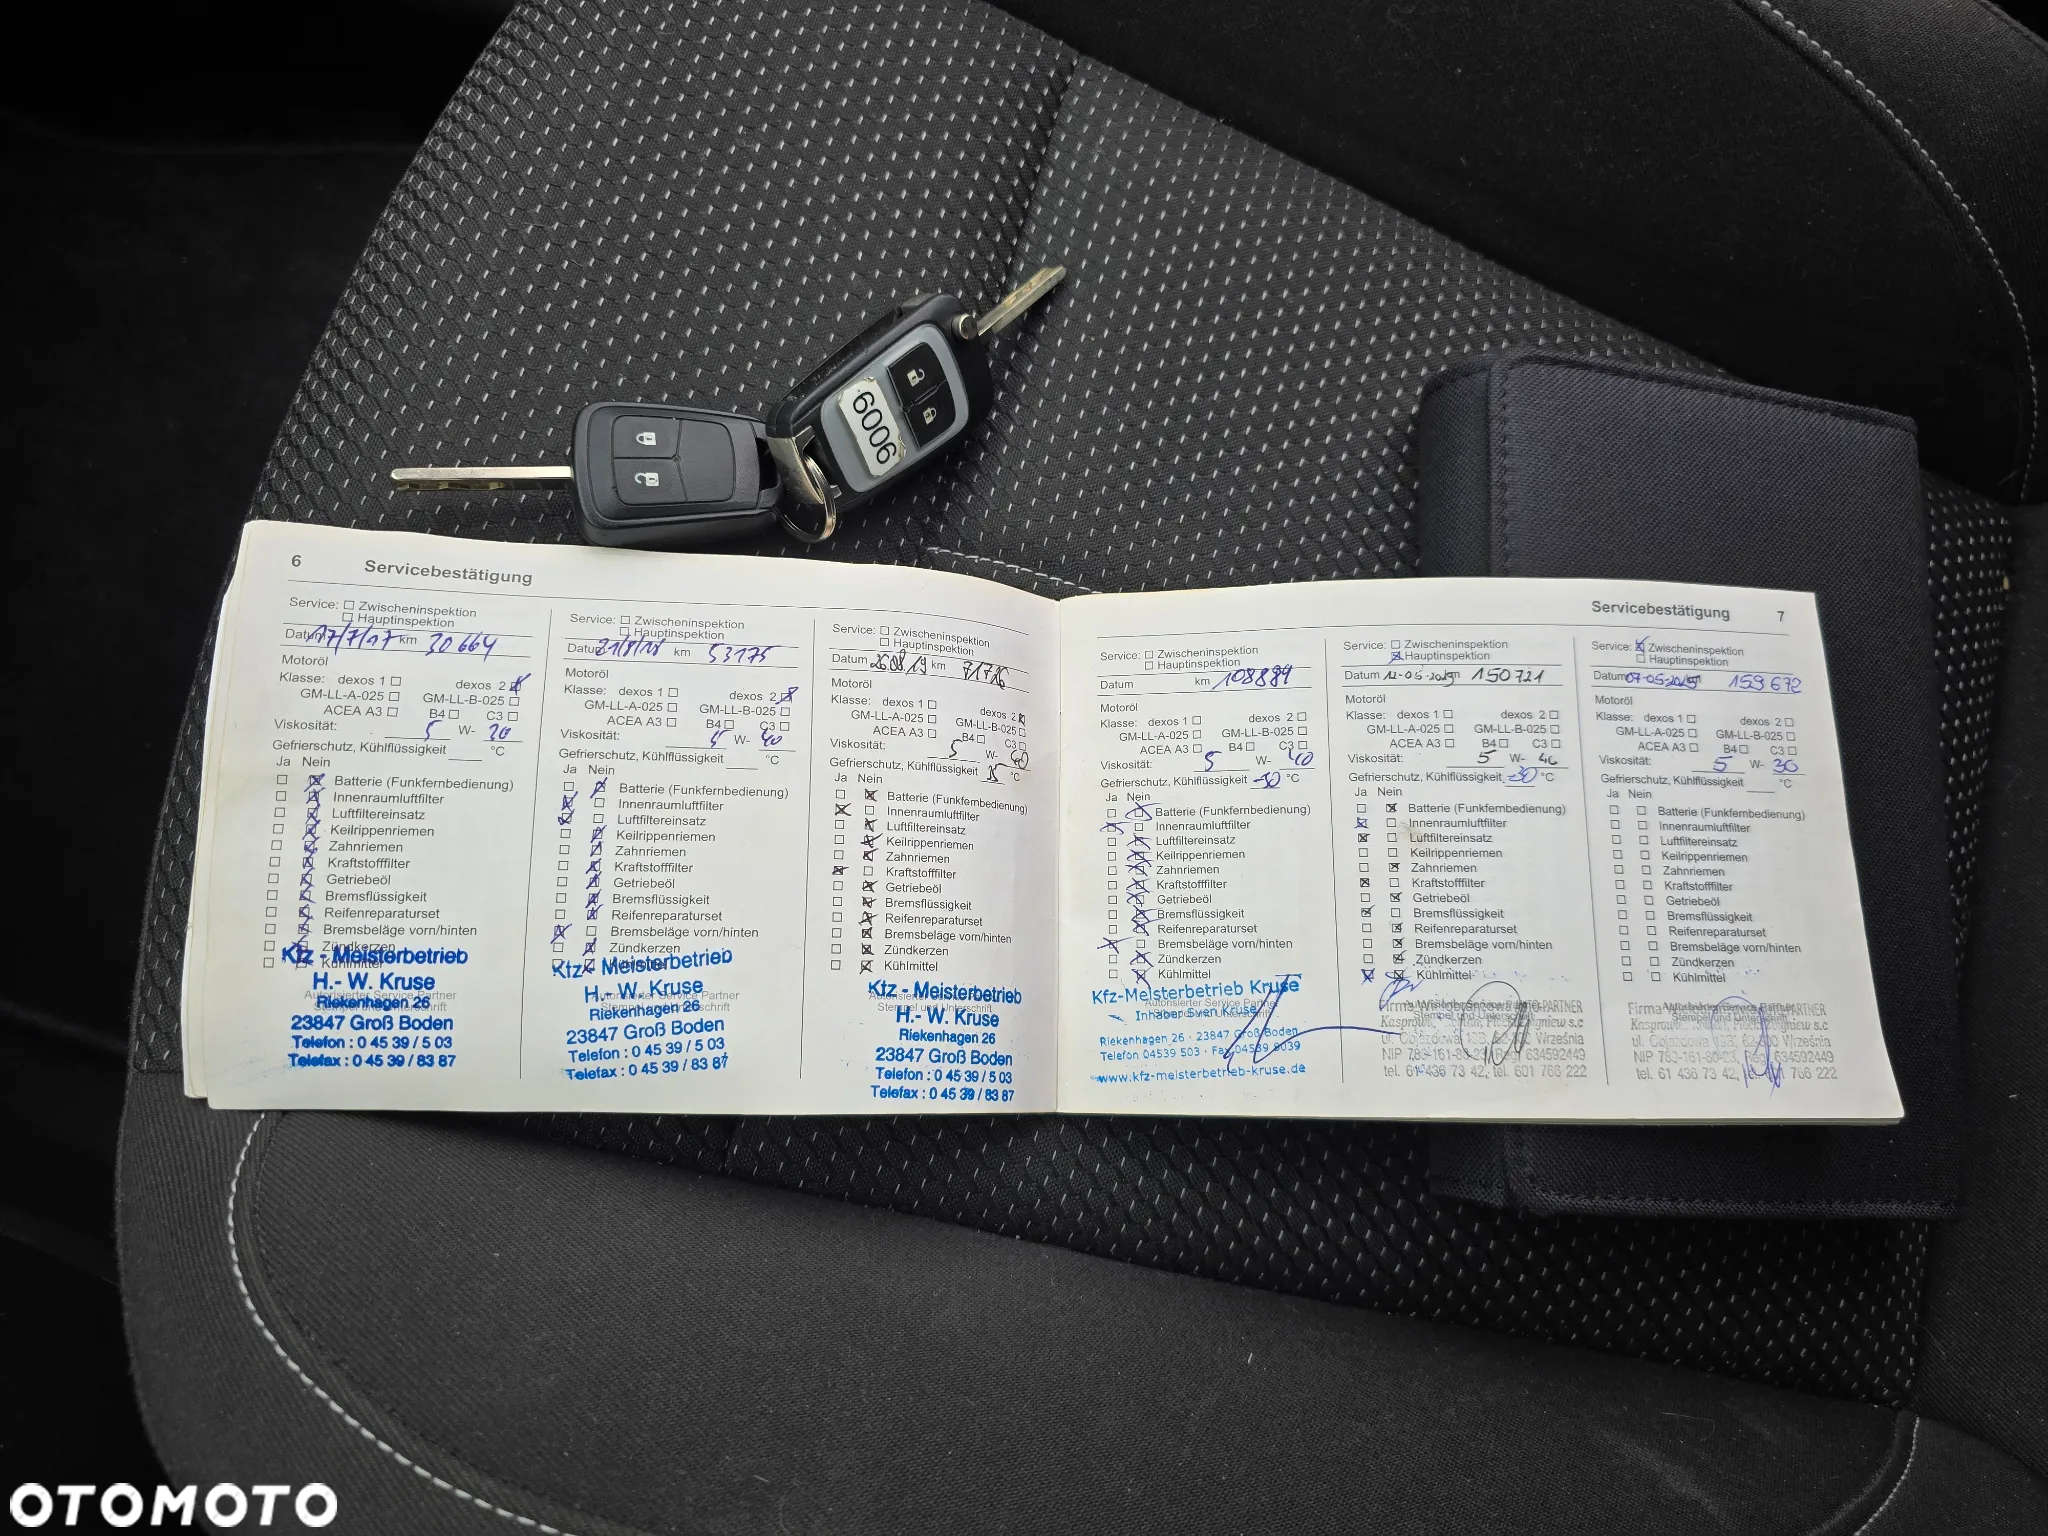 6009
6 Servicebestätigung
Service: Zwischeninspektion
Hauptinspektion
Datum 17/7/17 km 30 664
Motoröl
Klasse: dexos 1 dexos 2
GM-LL-A-025 GM-LL-B-025
ACEA A3 B4 C3
Viskosität: 5 W- 30
Gefrierschutz, Kühlflüssigkeit °C
Ja Nein
Batterie (Funkfernbedienung)
Innenraumluftfilter
Luftfiltereinsatz
Keilrippenriemen
Zahnriemen
Kraftstofffilter
Getriebeöl
Bremsflüssigkeit
Reifenreparaturset
Bremsbeläge vorn/hinten
Zündkerzen
Kühlmittel
Autorisierter Service Partner
Stempel und Unterschrift
Kfz - Meisterbetrieb
H.- W. Kruse
Riekenhagen 26
23847 Groß Boden
Telefon : 0 45 39 / 5 03
Telefax : 0 45 39 / 83 87
Service: Zwischeninspektion
Hauptinspektion
Datum 21/8/18 km 53175
Motoröl
Klasse: dexos 1 dexos 2
GM-LL-A-025 GM-LL-B-025
ACEA A3 B4 C3
Viskosität: 5 W- 40
Gefrierschutz, Kühlflüssigkeit °C
Ja Nein
Batterie (Funkfernbedienung)
Innenraumluftfilter
Luftfiltereinsatz
Keilrippenriemen
Zahnriemen
Kraftstofffilter
Getriebeöl
Bremsflüssigkeit
Reifenreparaturset
Bremsbeläge vorn/hinten
Zündkerzen
Kfz - Meisterbetrieb
H.- W. Kruse
Autorisierter Service Partner
Riekenhagen 26
23847 Groß Boden
Telefon : 0 45 39 / 5 03
Telefax : 0 45 39 / 83 87
Service: Zwischeninspektion
Hauptinspektion
Datum 26.08.19 km 71726
Motoröl
Klasse: dexos 1 dexos 2
GM-LL-A-025 GM-LL-B-025
ACEA A3 B4 C3
Viskosität: 5 W- 40
Gefrierschutz, Kühlflüssigkeit °C
Ja Nein
Batterie (Funkfernbedienung)
Innenraumluftfilter
Luftfiltereinsatz
Keilrippenriemen
Zahnriemen
Kraftstofffilter
Getriebeöl
Bremsflüssigkeit
Reifenreparaturset
Bremsbeläge vorn/hinten
Zündkerzen
Kühlmittel
Kfz - Meisterbetrieb
Autorisierter Service Partner
H.- W. Kruse
Riekenhagen 26
23847 Groß Boden
Telefon : 0 45 39 / 5 03
Telefax : 0 45 39 / 83 87
Servicebestätigung 7
Service: Zwischeninspektion
Hauptinspektion
Datum km 108889
Motoröl
Klasse: dexos 1 dexos 2
GM-LL-A-025 GM-LL-B-025
ACEA A3 B4 C3
Viskosität: 5 W- 40
Gefrierschutz, Kühlflüssigkeit -30 °C
Ja Nein
Batterie (Funkfernbedienung)
Innenraumluftfilter
Luftfiltereinsatz
Keilrippenriemen
Zahnriemen
Kraftstofffilter
Getriebeöl
Bremsflüssigkeit
Reifenreparaturset
Bremsbeläge vorn/hinten
Zündkerzen
Kühlmittel
Kfz-Meisterbetrieb Kruse
Autorisierter Service Partner
Inhaber Sven Kruse
Riekenhagen 26 · 23847 Groß Boden
Telefon 04539 503 · Fax 04539 8039
www.kfz-meisterbetrieb-kruse.de
Service: Zwischeninspektion
Hauptinspektion
Datum 12-05-2025 150721
Motoröl
Klasse: dexos 1 dexos 2
GM-LL-A-025 GM-LL-B-025
ACEA A3 B4 C3
Viskosität: 5 W- 40
Gefrierschutz, Kühlflüssigkeit -30 °C
Ja Nein
Batterie (Funkfernbedienung)
Innenraumluftfilter
Luftfiltereinsatz
Keilrippenriemen
Zahnriemen
Kraftstofffilter
Getriebeöl
Bremsflüssigkeit
Reifenreparaturset
Bremsbeläge vorn/hinten
Zündkerzen
Kühlmittel
NIP 783-161-80-23, Reg. 634592449
tel. 61 436 73 42, tel. 601 766 222
Service: Zwischeninspektion
Hauptinspektion
Datum 159 672
Motoröl
Klasse: dexos 1 dexos 2
GM-LL-A-025 GM-LL-B-025
ACEA A3 B4 C3
Viskosität: 5 W- 30
Gefrierschutz, Kühlflüssigkeit °C
Ja Nein
Batterie (Funkfernbedienung)
Innenraumluftfilter
Luftfiltereinsatz
Keilrippenriemen
Zahnriemen
Kraftstofffilter
Getriebeöl
Bremsflüssigkeit
Reifenreparaturset
Bremsbeläge vorn/hinten
Zündkerzen
Kühlmittel
NIP 783-161-80-23, Reg. 634592449
tel. 61 436 73 42, 766 222
OTOMOTO